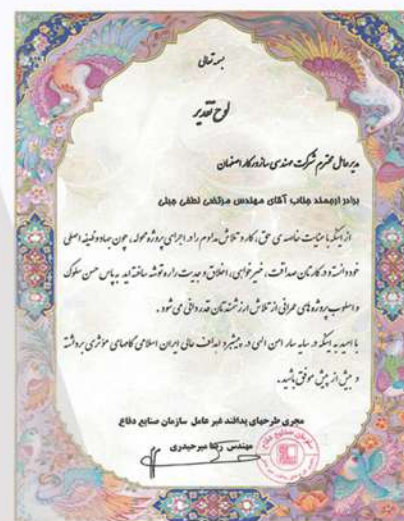 بسمه تعالی
لوح تقدیر
مدیرعامل محترم شرکت مهندسی سازورکار اصفهان
برادر ارجمند جناب آقای مهندس مرتضی لطفی جبلی
از اینکه با عنایت خاصه ی حق، کار و تلاش مداوم را در اجرای پروژه محوله، چون جهاد وظیفه اصلی
خود دانسته و در کارتان صداقت، خیرخواهی، اخلاق و جدیت را ره توشه ساخته اید به پاس حسن سلوک
و اسلوب پروژه های عمرانی از تلاش ارزشمندتان قدردانی می شود.
با امید به اینکه در سایه سار امن الهی در پیشبرد اهداف عالی ایران اسلامی گامهای مؤثری برداشته
و بیش از پیش موفق باشید.
مجری طرحهای پدافند غیر عامل سازمان صنایع دفاع
مهندس رضا میرحیدری
سازمان صنایع دفاع